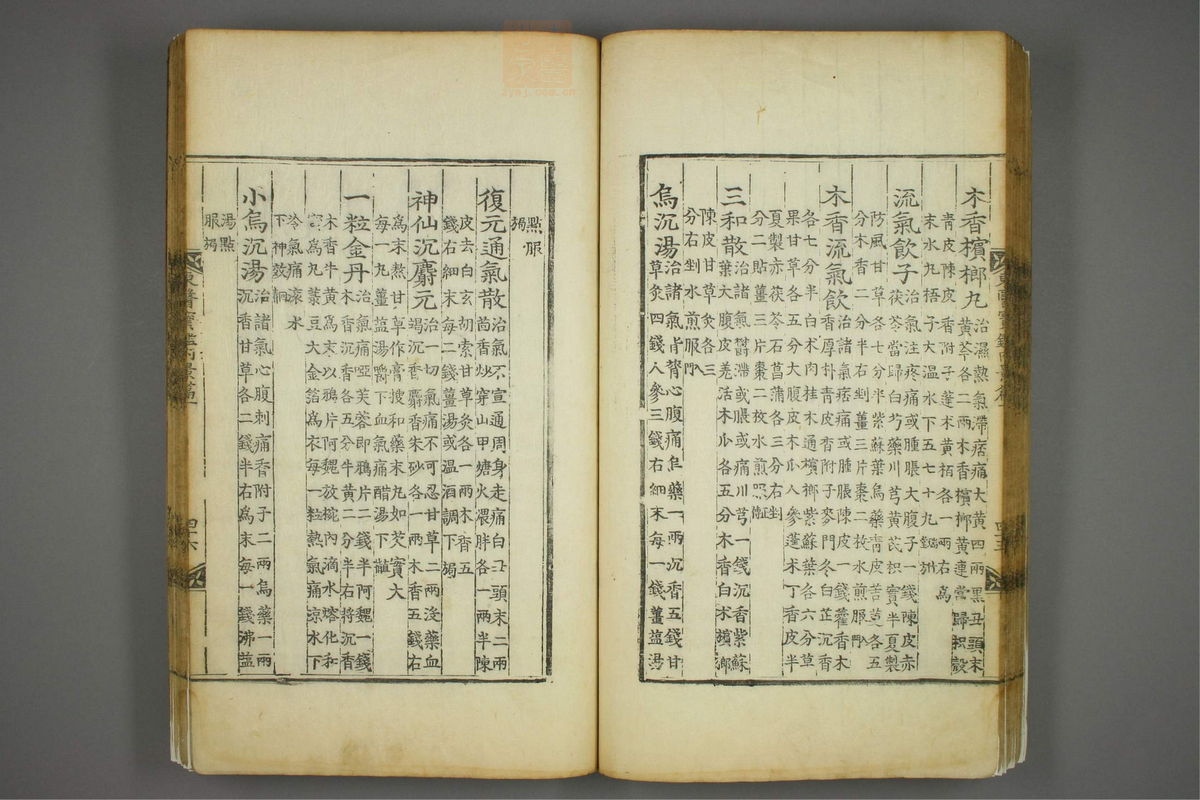 木香檳榔丸治濕熱氣滯痞痛大黃四兩黑丑頭末
黃芩各二兩木香檳榔黃連當歸枳殼
靑皮陳皮香附子蓬朮黃栢各一兩右爲
末水丸梧子大温水下五七十丸
流氣飮子治氣注疼痛或腫脹大腹子一錢陳皮赤
茯苓當歸白芍藥川芎黃芪枳實半夏製
防風甘草各七分半紫蘇葉烏藥靑皮吉莄各五
分木香二分半右剉薑三片棗二枚水煎服
木香流氣飮治諸氣痞痛或腫脹陳皮一錢藿香木
香厚朴靑皮香附子麥門冬白芷沉香
各七分半白朮肉桂木通檳榔紫蘇葉各六分草
果甘草各五分大腹皮木瓜人參蓬朮丁香皮半
夏製赤茯苓石菖蒲各三分右剉
分二貼薑三片棗二枚水煎服
三和散治諸氣鬱滯或脹或痛川芎一錢沉香紫蘇
葉大腹皮羌活木瓜各五分木香白朮檳榔
陳皮甘草灸各三
分右剉水煎服入門
烏沉湯治諸氣背心腹痛烏藥一兩沉香五錢甘
草灸四錢人參三錢右細末每一錢薑盐湯
東醫寶鑑內景篇一
四十五
點服
局
復元通氣散治氣不宣通周身走痛白丑頭末二兩
茴香炒穿山甲煻火煨胖各一兩半陳
皮去白玄胡索甘草灸各一兩木香五
錢右細末每二錢薑湯或温酒調下局
神仙沉麝元治一切氣痛不可忍甘草二兩沒藥血
竭沉香麝香朱砂各一兩木香五錢右
爲末熬甘草作膏搜和藥末丸如芡實大
每一丸薑盐湯嚼下血氣痛醋湯下
一粒金丹治氣痛啞芙蓉即鴉片二錢半阿魏一錢
木香沉香各五分牛黃二分半右將沉香
木香牛黃爲末以鴉片阿魏放椀內滴水熔化和
蜜爲丸菉豆大金箔爲衣每一粒熱氣痛凉水下
冷氣痛滾水
下神效
小烏沉湯治諸氣心腹刺痛香附子二兩烏藥一兩
沉香甘草各二錢半右爲末每一錢沸盐
湯點
服局
東醫寶鑑內景篇一
四十六